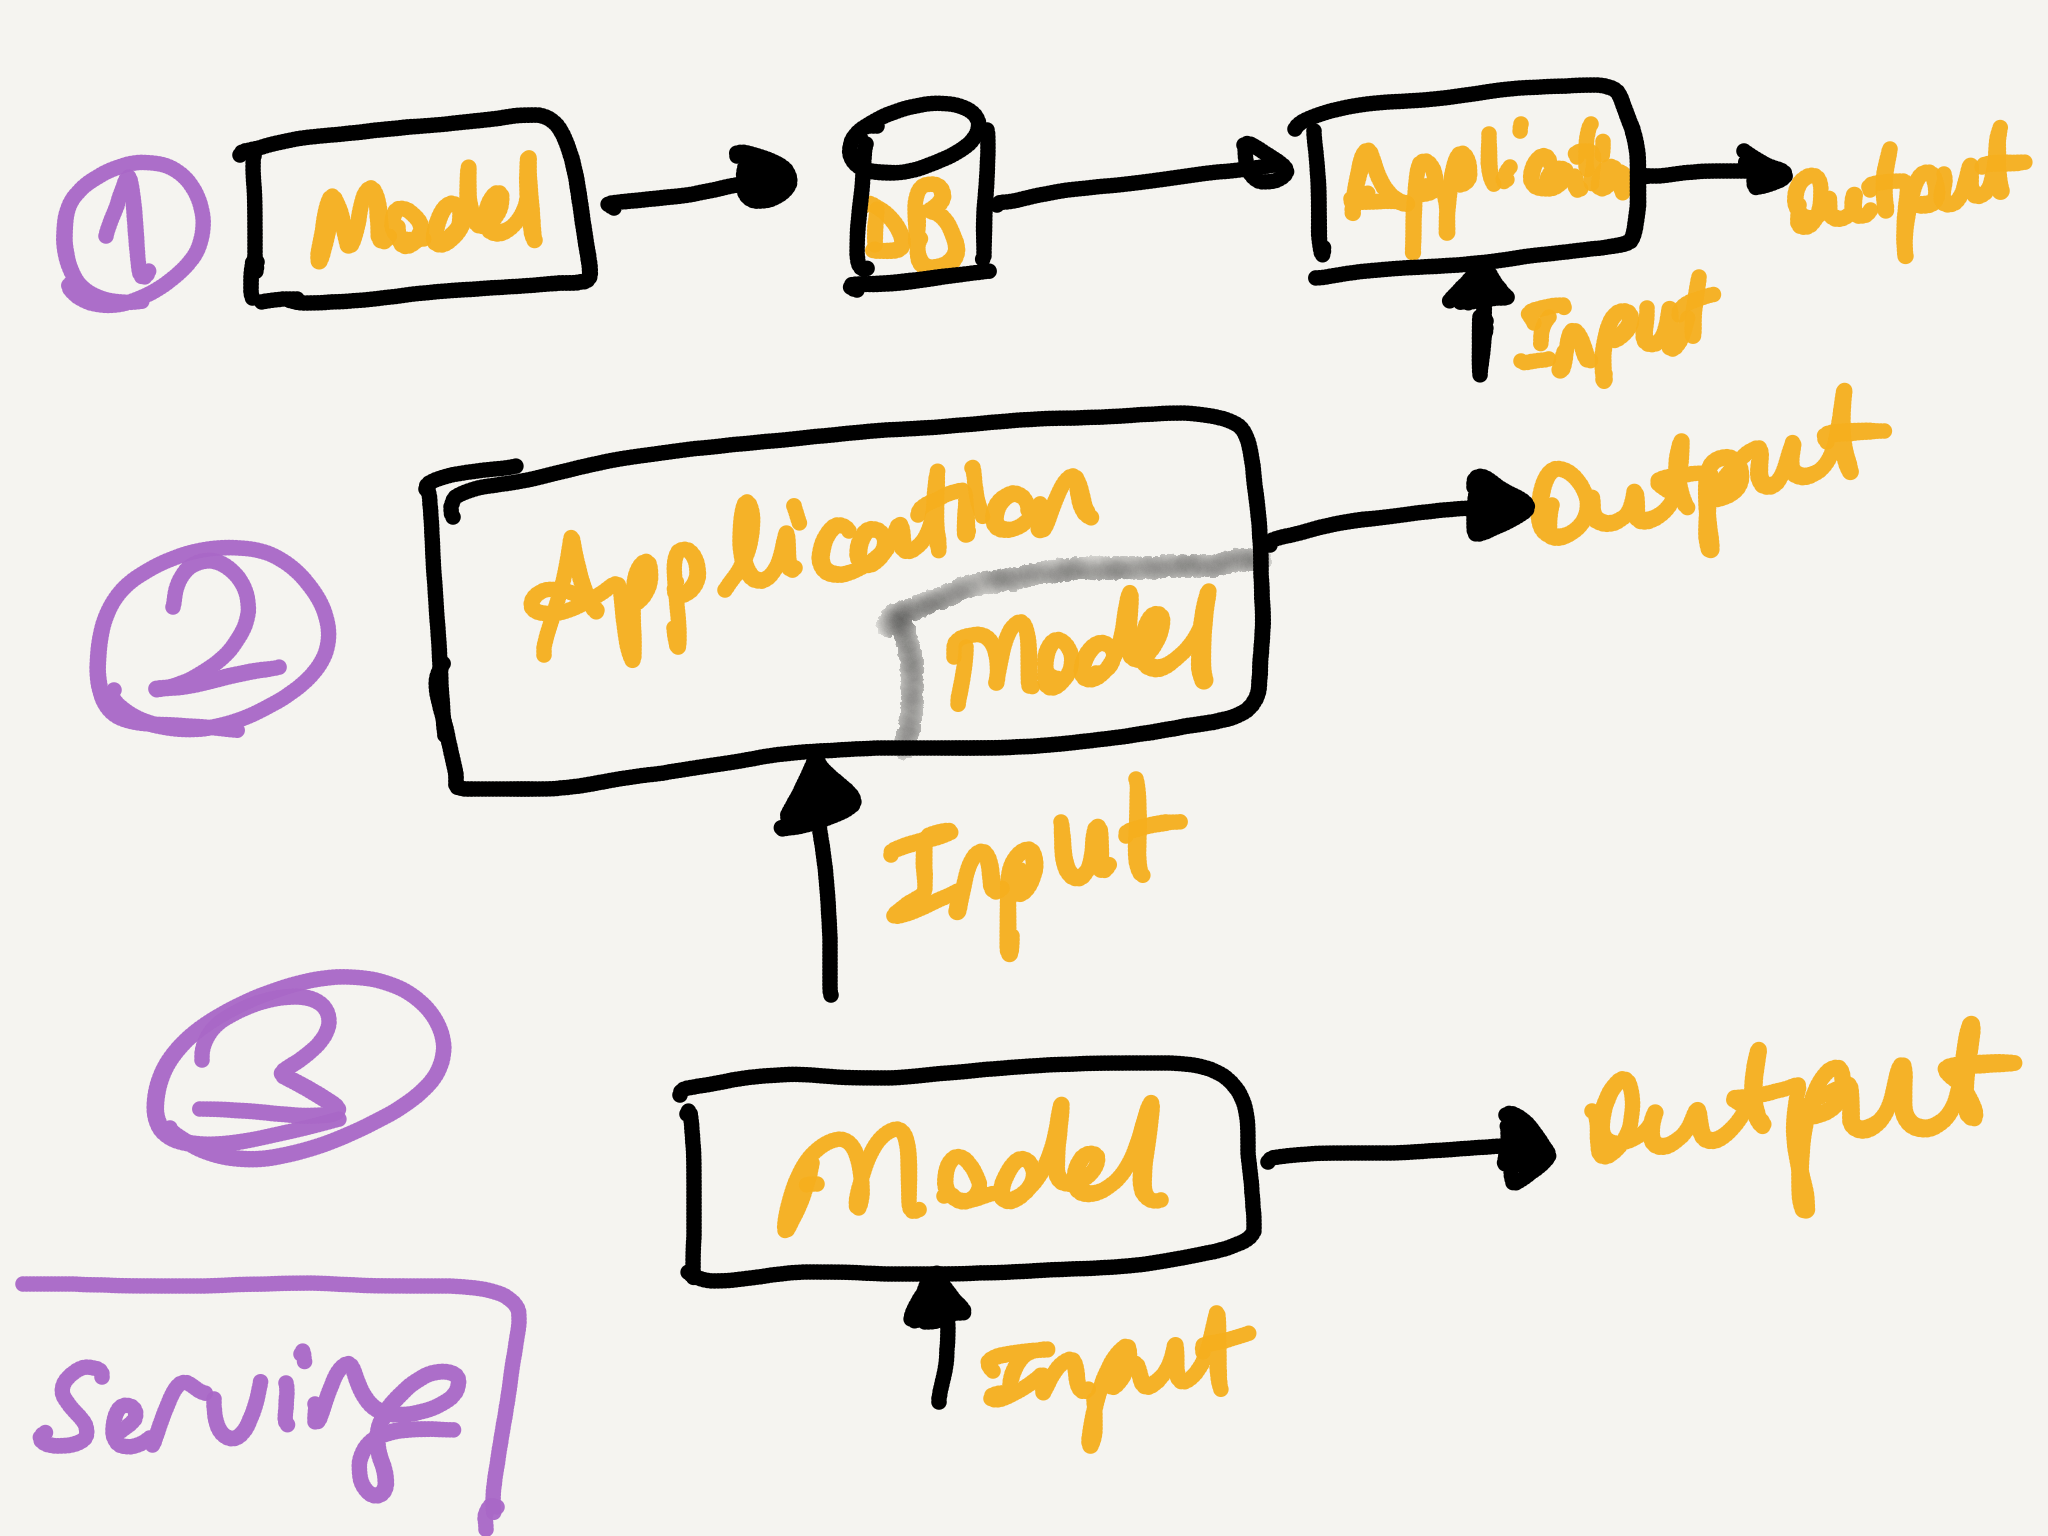 1
Model
DB
Applicatn
Output
Input
2
Application
Model
Output
Input
3
Model
Output
Input
Serving